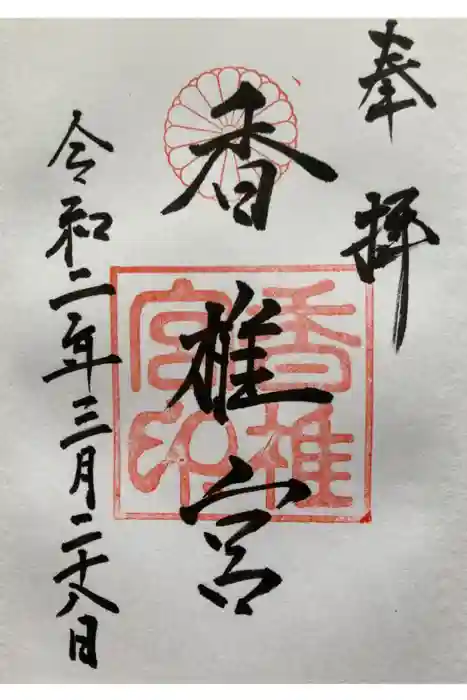 奉拝
香椎宮
令和二年三月二十八日
香椎
宮印